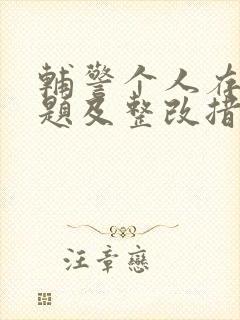 輔警个人存
題及整改措
汪章戀